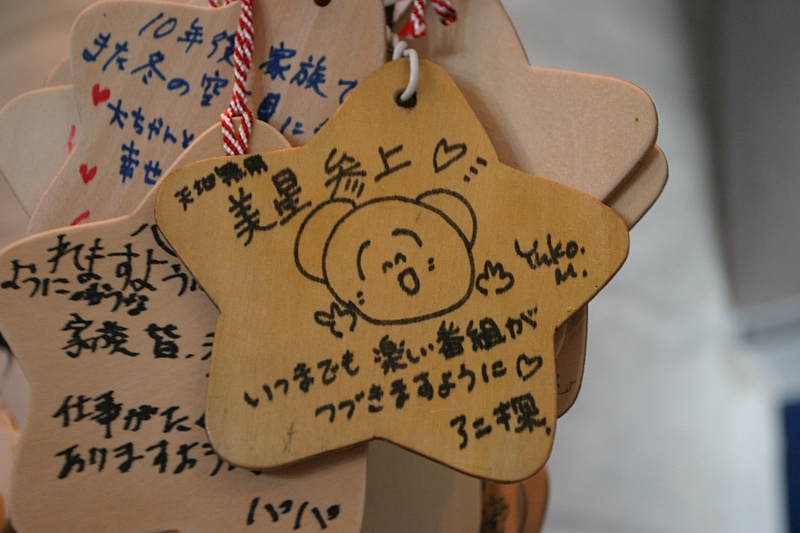 10年後 家族で
また冬の空
大ちゃんと
幸せ
天地無用
美星 参上♡
Yuko.
M.
いつまでも 楽しい番組が
つづきますように♡
れますよ
ように
家族 皆
仕事がたく
ありますよう
パパ